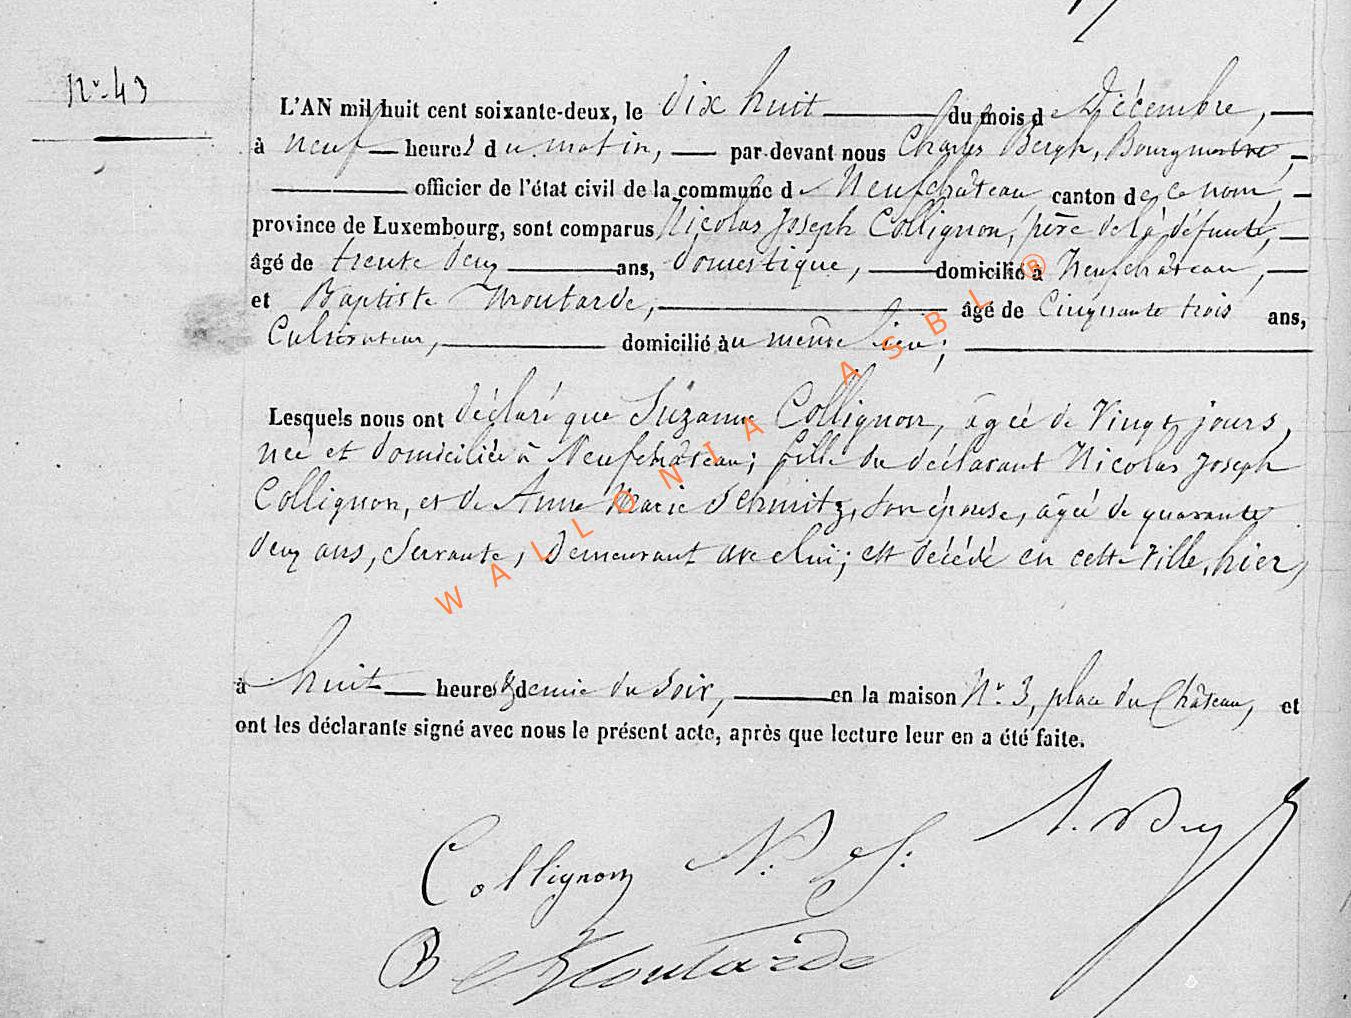 Nr. 43
L'AN mil huit cent soixante-deux, le dix huit du mois de Décembre,
à neuf heures du matin, par devant nous Charles Bergh, Bourgmestre,
officier de l'état civil de la commune de Neufchâteau canton de ce nom,
province de Luxembourg, sont comparus Nicolas Joseph Collignon, père de la défunte,
âgé de trente deux ans, domestique, domicilié à Neufchâteau,
et Baptiste Moutarde, âgé de Cinquante trois ans,
Cultivateur, domicilié au même lieu;
Lesquels nous ont déclaré que Suzanne Collignon, âgée de Vingt jours,
née et domiciliée à Neufchâteau; fille du déclarant Nicolas Joseph
Collignon, et de Anne Marie Schmitz, son épouse, âgée de quarante
deux ans, Servante, Demeurant avec lui; est décédé en cette Ville, hier,
à huit heures & demie du soir, en la maison Nr. 3, place du Château, et
ont les déclarants signé avec nous le présent acte, après que lecture leur en a été faite.
Collignon N. J.
B Moutarde
WALLONIA ASBL ®